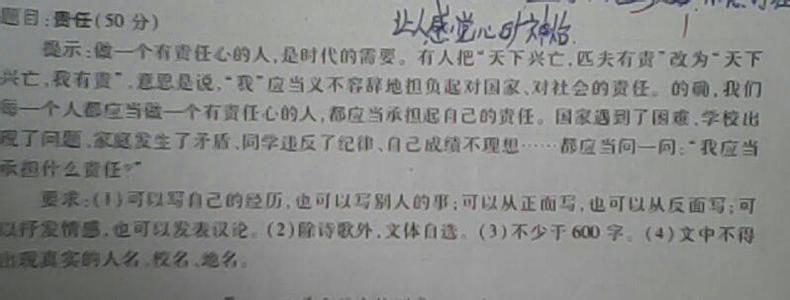 让人感觉心旷神怡
题目:责任(50分)
提示:做一个有责任心的人,是时代的需要。有人把“天下兴亡,匹夫有责”改为“天下
兴亡,我有责”,意思是说,“我”应当义不容辞地担负起对国家、对社会的责任。的确,我们
每一个人都应当做一个有责任心的人,都应当承担起自己的责任。国家遇到了困难、学校出
现了问题、家庭发生了矛盾、同学违反了纪律、自己成绩不理想……都应当问一问:“我应当
承担什么责任?”
要求:(1)可以写自己的经历,也可以写别人的事;可以从正面写,也可以从反面写;可
以抒发情感,也可以发表议论。(2)除诗歌外,文体自选。(3)不少于600字。(4)文中不得
出现真实的人名、校名、地名。